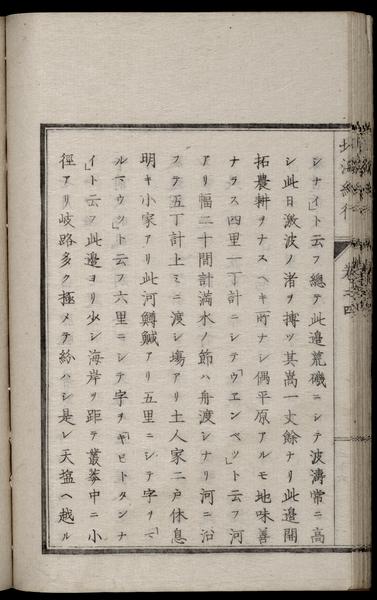 シナイ」ト云フ總テ此邉荒磯ニシテ波濤常ニ高
シ此日激波ノ渚ヲ搏ツ其嵩一丈餘ナリ此邉開
拓農耕ヲナスヘキ所ナシ偶平原アルモ地味善
ナラス四里一丁計ニシテ「ウエンベツ」ト云フ河
アリ幅二十間計満水ノ節ハ舟渡シナリ河ニ沿
フテ五丁計上ミニ渡シ塲アリ土人家二戸休息
明キ小家アリ此河鱒鰔アリ五里ニシテ字ヲ「マ
ルマウツ」ト云フ六里ニシテ字ヲ「キヒトタンナ
イ」ト云フ此邉ヨリ少シ海岸ヲ距テ叢莽中ニ小
徑アリ岐路多ク極メテ紛ハシ是レ天塩ヘ越ル
北海紀行
卷之四